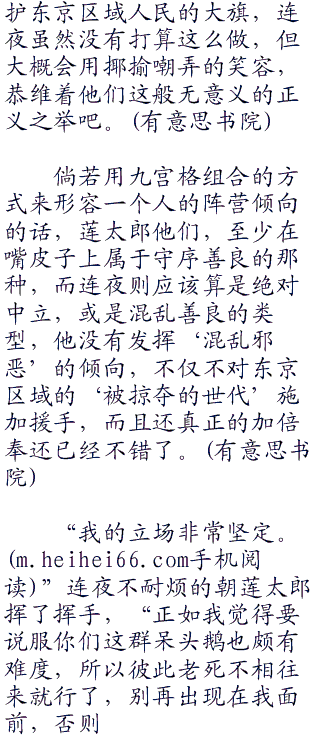 护东京区域人民的大旗，连
夜虽然没有打算这么做，但
大概会用揶揄嘲弄的笑容，
恭维着他们这般无意义的正
义之举吧。(有意思书院)
倘若用九宫格组合的方
式来形容一个人的阵营倾向
的话，莲太郎他们，至少在
嘴皮子上属于守序善良的那
种，而连夜则应该算是绝对
中立，或是混乱善良的类
型，他没有发挥‘混乱邪
恶’的倾向，不仅不对东京
区域的‘被掠夺的世代’施
加援手，而且还真正的加倍
奉还已经不错了。(有意思书
院)
“我的立场非常坚定。
(m.heihei66.com手机阅
读)”连夜不耐烦的朝莲太郎
挥了挥手，“正如我觉得要
说服你们这群呆头鹅也颇有
难度，所以彼此老死不相往
来就行了，别再出现在我面
前，否则